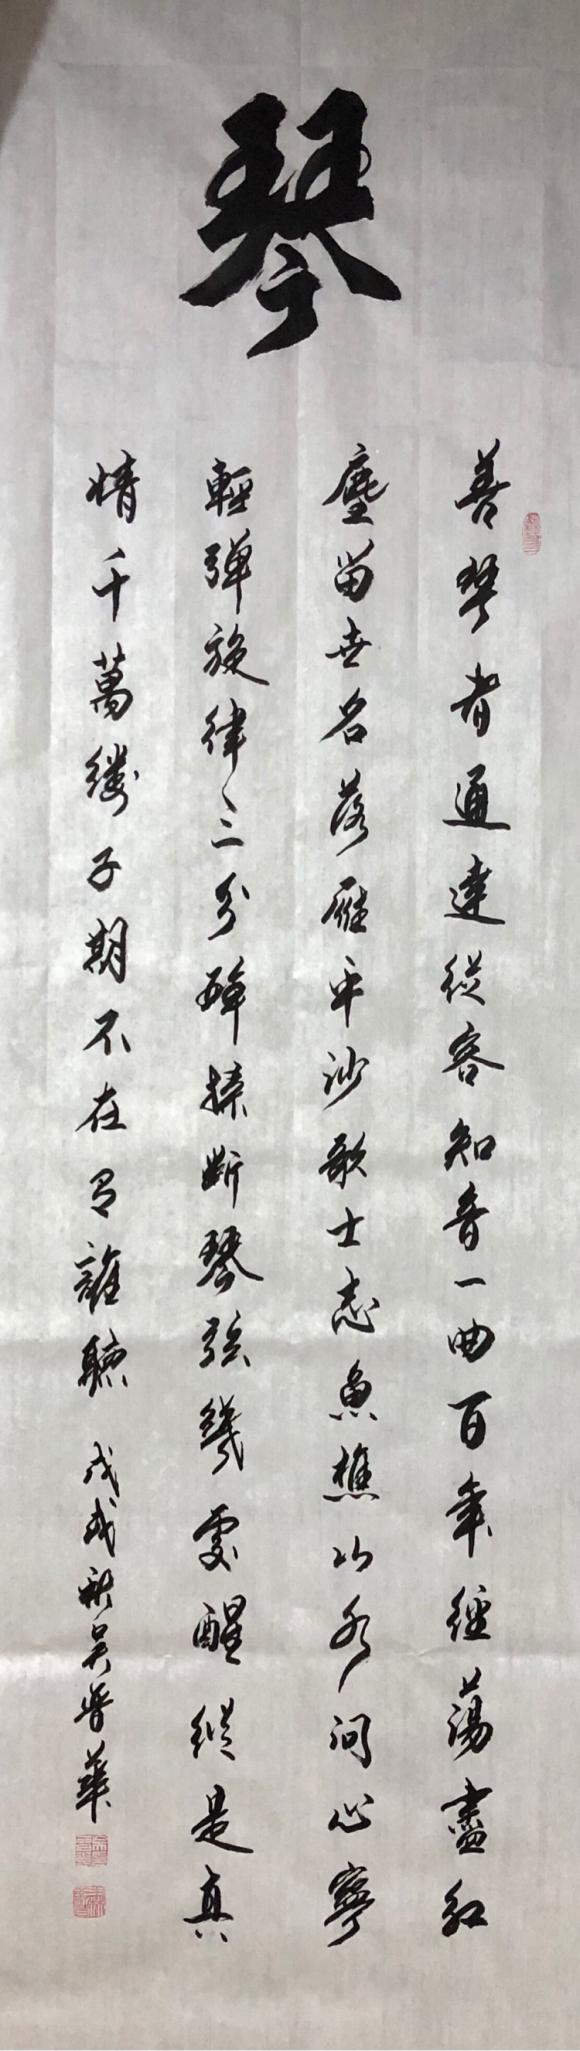 琴
善琴者通達從容知音一曲百年經蕩盡紅
塵留世名落雁平沙歌士志魚樵山水問心寧
輕彈旋律三分醉揉斷琴弦幾處醒縱是真
情千萬縷子期不在有誰聽
戊戌秋吳晉華